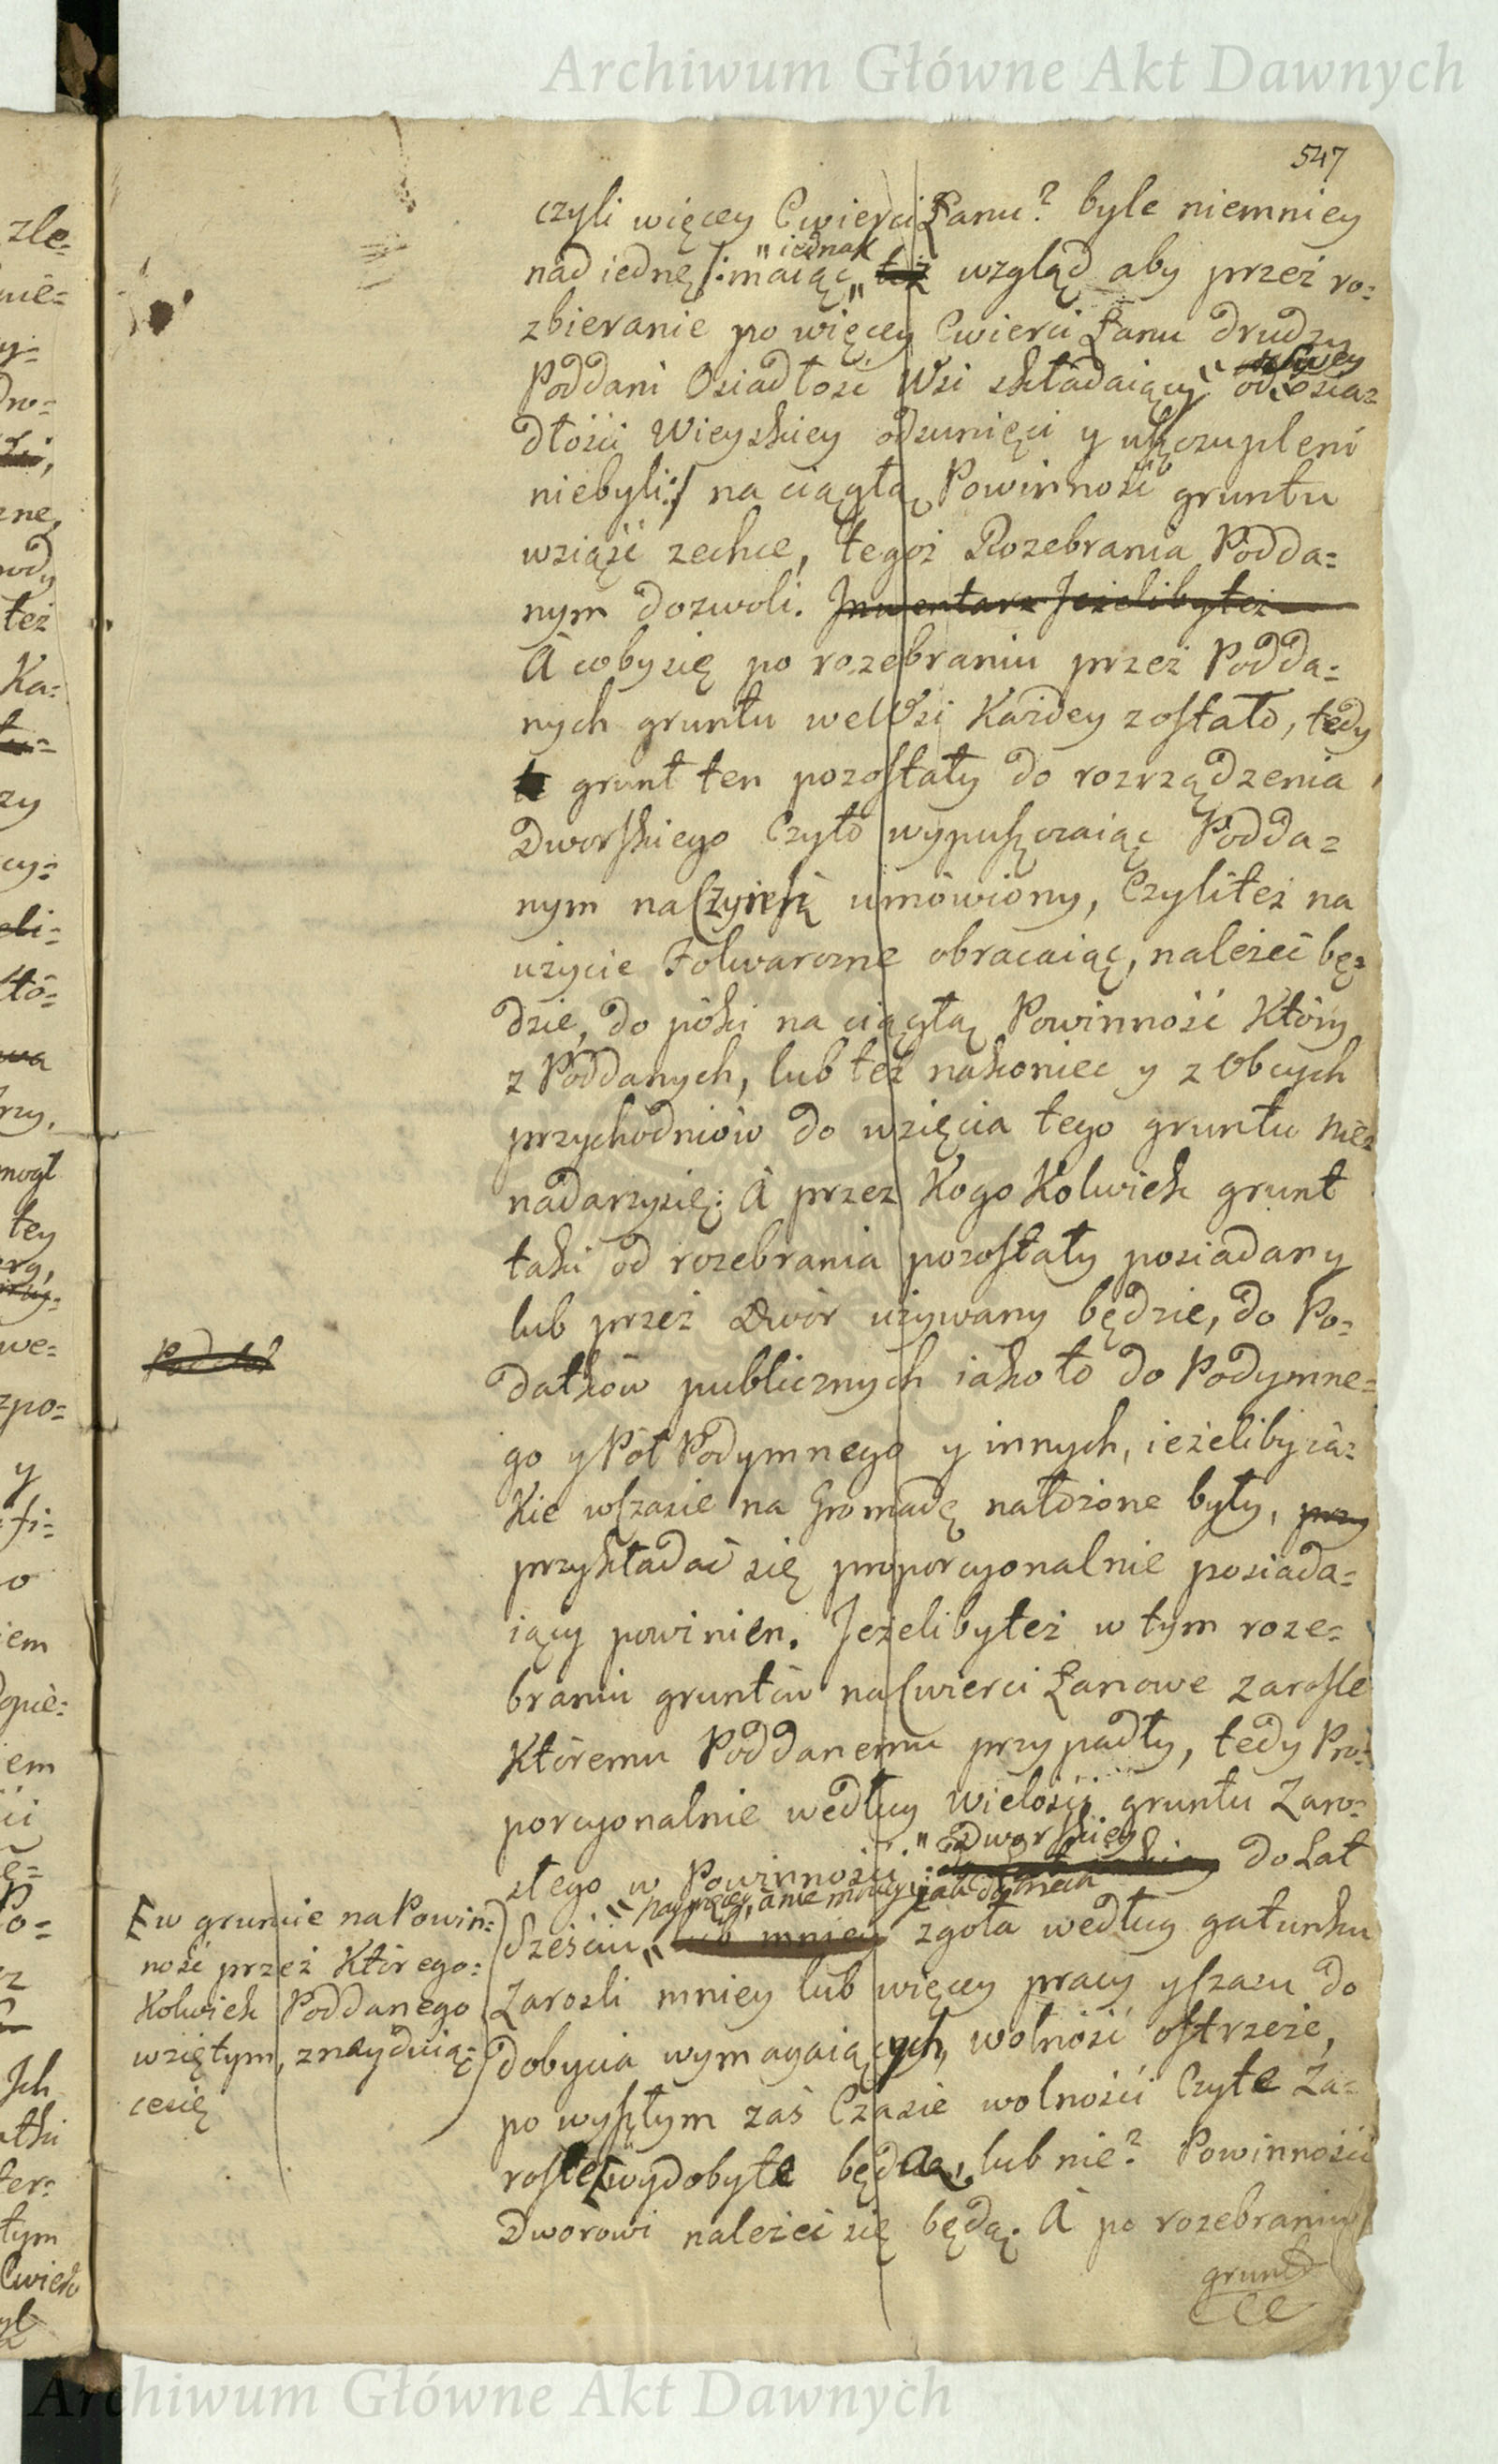 Archiwum Główne Akt Dawnych
547
czyli więcey Cwierci Łanu? byle niemniey
nad iednę /:maiąc „ iednak „ też wzgląd aby przez ro=
zbieranie po więcey Cwierci Łanu drudzy
Poddani Osiadłość Wsi składaiący od osia=
dłości Wieyskiey odsunięci y uszczupleni
niebyli:/ na ciągłą Powinność gruntu
wziąść zechce, tegoż Rozebrania Podda=
nym dozwoli. Inwentarz Jeżelibyteż
A coby się po rozebraniu przez Podda=
nych gruntu we Wsi Każdey zostało, tedy
grunt ten pozostały do rozrządzenia
Dworskiego Czyto wypuszczaiąc Podda=
nym na Czynsz umówiony, Czyliteż na
użycie Folwarczne obracaiąc, należeć bę=
dzie, do póki na ciągłą Powinność Który
z Poddanych, lub też nakoniec y z Obcych
przychodniów do wzięcia tego gruntu nie=
nadarzysię: A przez Kogo Kolwiek grunt
taki od rozebrania pozostały posiadany
lub przez Dwór używany będzie, do Po=
datków publicznych iako to do Podymne=
go y Pół Podymnego y innych, ieżeliby ia=
Kie wczasie na Gromadę nałożone były, przy
przykładać się proporcyonalnie posiada=
iący powinien. Jeżelibyteż w tym roze=
braniu gruntów na Cwierci Łanowe zarosle
Któremu Poddanemu przypadły, tedy Pro=
porcyonalnie według wielości gruntu Zaro=
słego w Powinności „ Dworskiey do Lat
dzesciu „ naywięcey, a nie mniey iak do trzech lub mniey zgoła według gatunku
Zarosli mniey lub więcey pracy y Czasu do
dobycia wymagaiących, wolność ostrzeże,
po wyszłym zaś Czasie wolności Czyte Za=
rosle wydobyte będą, lub nie? Powinności
Dworowi należeć się będą. A po rozebraniu
grunt
w gruncie na Powin=
ność przez Którego=
Kolwiek Poddanego
wziętym, znayduią=
cesię
Archiwum Główne Akt Dawnych